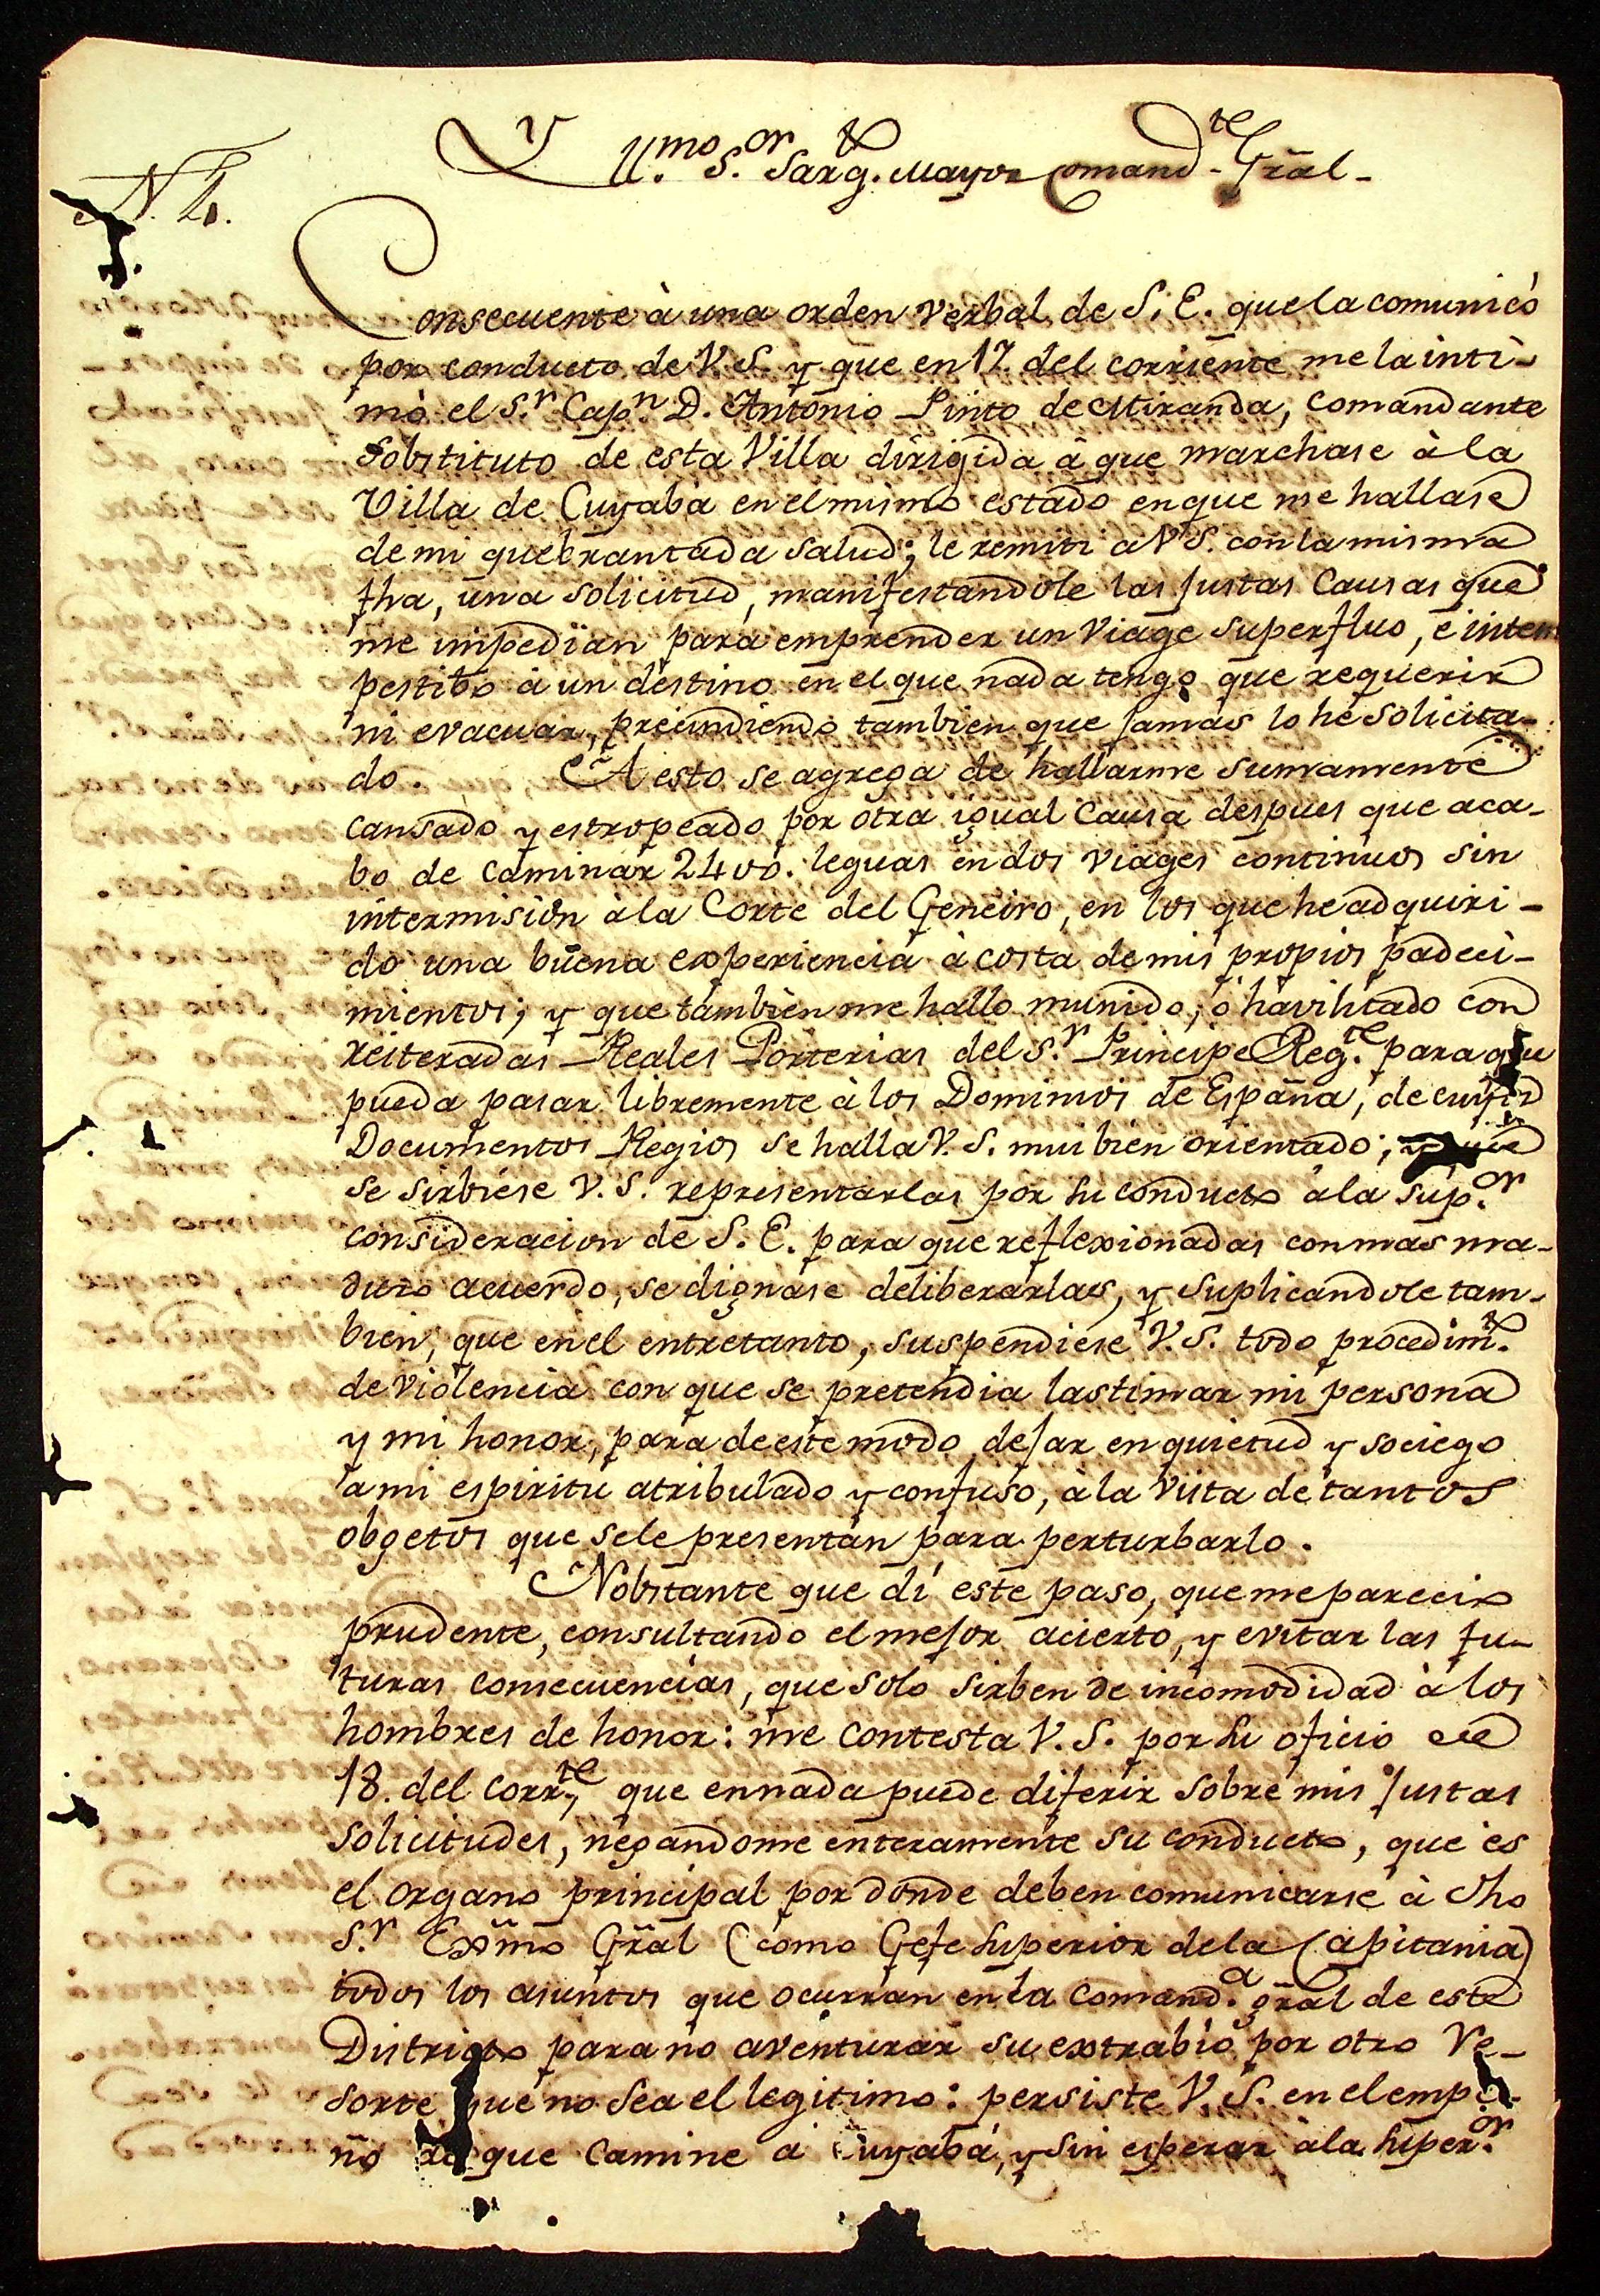 Yll.mo S.or Sarg.to Mayor Comand.te Grãl-
N. 4.
Consecuente à una orden verbal de S. E. que la comunicó
por conducto de V. S. y que en 17. del corriente me la inti-
mò el S.r Cap.n D. Antonio Pinto de Miranda, comandante
Sobstituto de esta Villa dirigida à que marchase à la
Villa de Cuyabá en el mismo estado en que me hallase
de mi quebrantada salud; le remiti a V S. con la misma
fha, una solicitud, manifestandole las justas Causas que
me impedian para emprender un Viage superfluo, é intem
pestibo à un destino en el que nada tengo que requerir
ni evacuar, precindiendo tambien que jamás lo hé solicita-
do. A esto se agrega de hallarme sumamente
cansado y estropeado por otra igual Causa despues que aca-
bo de caminar 2400. leguas en dos viages continuos sin
intermision à la Corte del Geneiro, en los que he adquiri-
do una buena experiencia à costa de mis propios padeci-
mientos; y que tambien me hallo munido, ó havilitado con
reiteradas Reales Porterias del S.r Principe Reg.te para que
pueda pasar libremente à los Dominios de España, de cuyos
Documentos Regios se halla V. S. mui bien orientado; y que
se sirbiese V. S. representarlas por su conducto à la sup.or
consideracion de S. E. para que reflexionadas con mas ma-
duro acuerdo, se dignase deliberarlas, y suplicandole tam-
bien, que en el entretanto, suspendiese V. S. todo procedim.to
de violencia con que se pretendia lastimar mi persona
y mi honor, para de este modo dejar en quietud y sociego
a mi espiritu atribulado y confuso, à la Vista de tantos
obgetos que se le presentan para perturbarlo.
Nobstante que dí este paso, que me parecio
prudente, consultando el mejor acierto, y evitar las fu-
turas consecuencias, que solo sirben de incomodidad à los
hombres de honor: me contesta V. S. por su oficio de
18. del corr.te, que en nada puede diferir sobre mis justas
solicitudes, negandome enteramente su conducto, que es
el organo principal por donde deben comunicarse à dho
S.r Exmõ Grãl (como Gefe superior de la Capitania)
todos los asuntos que ocurran en la Comand.a grãl de este
Distrito para no aventurar su extrabio por otro Re-
sorte que no sea el legitimo: persiste V. S. en el empe-
ño de que camine a Cuyabá, y sin esperar à la super.or